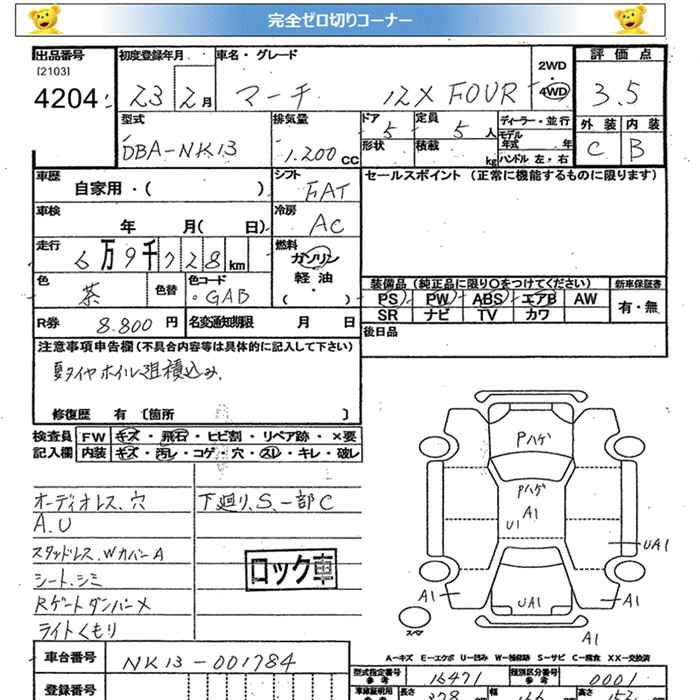 完全ゼロ切りコーナー
出品番号 初度登録年月 車名・グレード 2WD 評価点
[2103]
4204 23 2月 マーチ 12X FOUR 4WD 3.5
型式 排気量 ドア 5 定員 5人 ディーラー・並行 外装 内装
DBA-NK13 1.200CC 形状 積載 kg モデル年式 年 C B
ハンドル左・右
車歴 自家用・( ) シフト FAT セールスポイント(正常に機能するものに限ります)
車検 年 月( 日) 冷房 AC
走行 6万9千728km 燃料 ガソリン
軽油
( ・ )
色 茶 色替 色コード ・GAB 装備品(純正品に限り○をつけてください) 新車保証書
PS PW ABS エアB AW 有・無
SR ナビ TV カワ
R券 8.800円 名変通知期限 月 日 後日品
注意事項申告欄(不具合内容等は具体的に記入して下さい)
夏タイヤホイル組積込み.
修復歴 有 〔箇所 〕
検査員 FW キズ・飛石・ヒビ割・リペア跡・×要
記入欄 内装 キズ・汚レ・コゲ・穴・スレ・キレ・破レ
オーディオレス、穴 下廻り、S、一部C
A.U
スタッドレス、WカバーA
シート、シミ
RゲートダンパーX
ライトくもり
ロック車
Pハゲ
Pハゲ
A1
U1
UA1
A1
UA1
A1
スペア
A1
A-キズ E-エクボ U-凹み W-補修跡 S-サビ C-腐食 XX-交換済
車台番号 NK13-001784 型式指定番号 参考 16471 類別区分番号 参考 0001
登録番号 車庫証明用 参考 長さ 378 幅 166 高さ 153